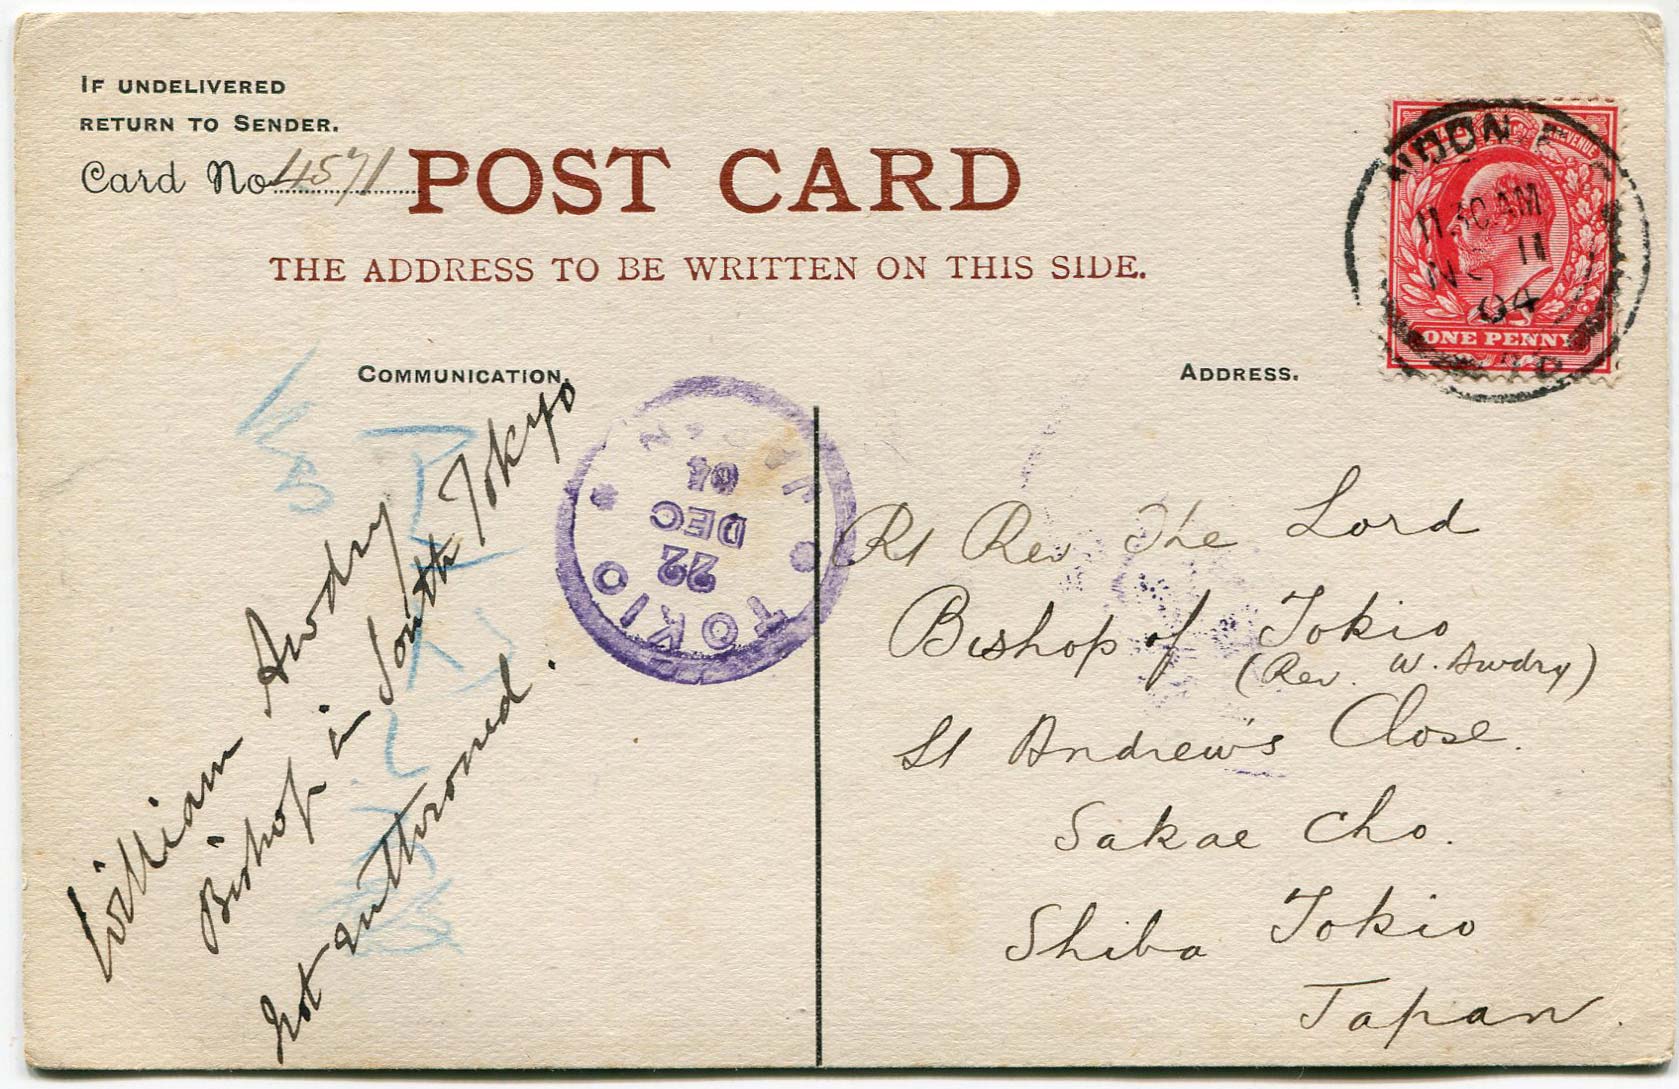 IF UNDELIVERED
RETURN TO SENDER.
Card No 4571
POST CARD
THE ADDRESS TO BE WRITTEN ON THIS SIDE.
REVENUE
11.30 AM
11
04
ONE PENNY
COMMUNICATION.
ADDRESS.
William Awdry
Bishop in South Tokyo
not enthroned.
TOKIO
22
DEC
04
Rt Rev The Lord
Bishop of Tokio
(Rev. W. Awdry)
St Andrew's Close.
Sakae Cho.
Shiba Tokio
Japan.